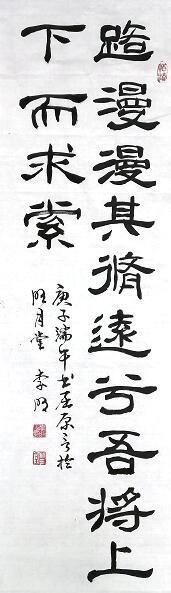 路漫漫其脩遠兮吾将上
下而求索
庚子端午书屈原於
明月堂 李明